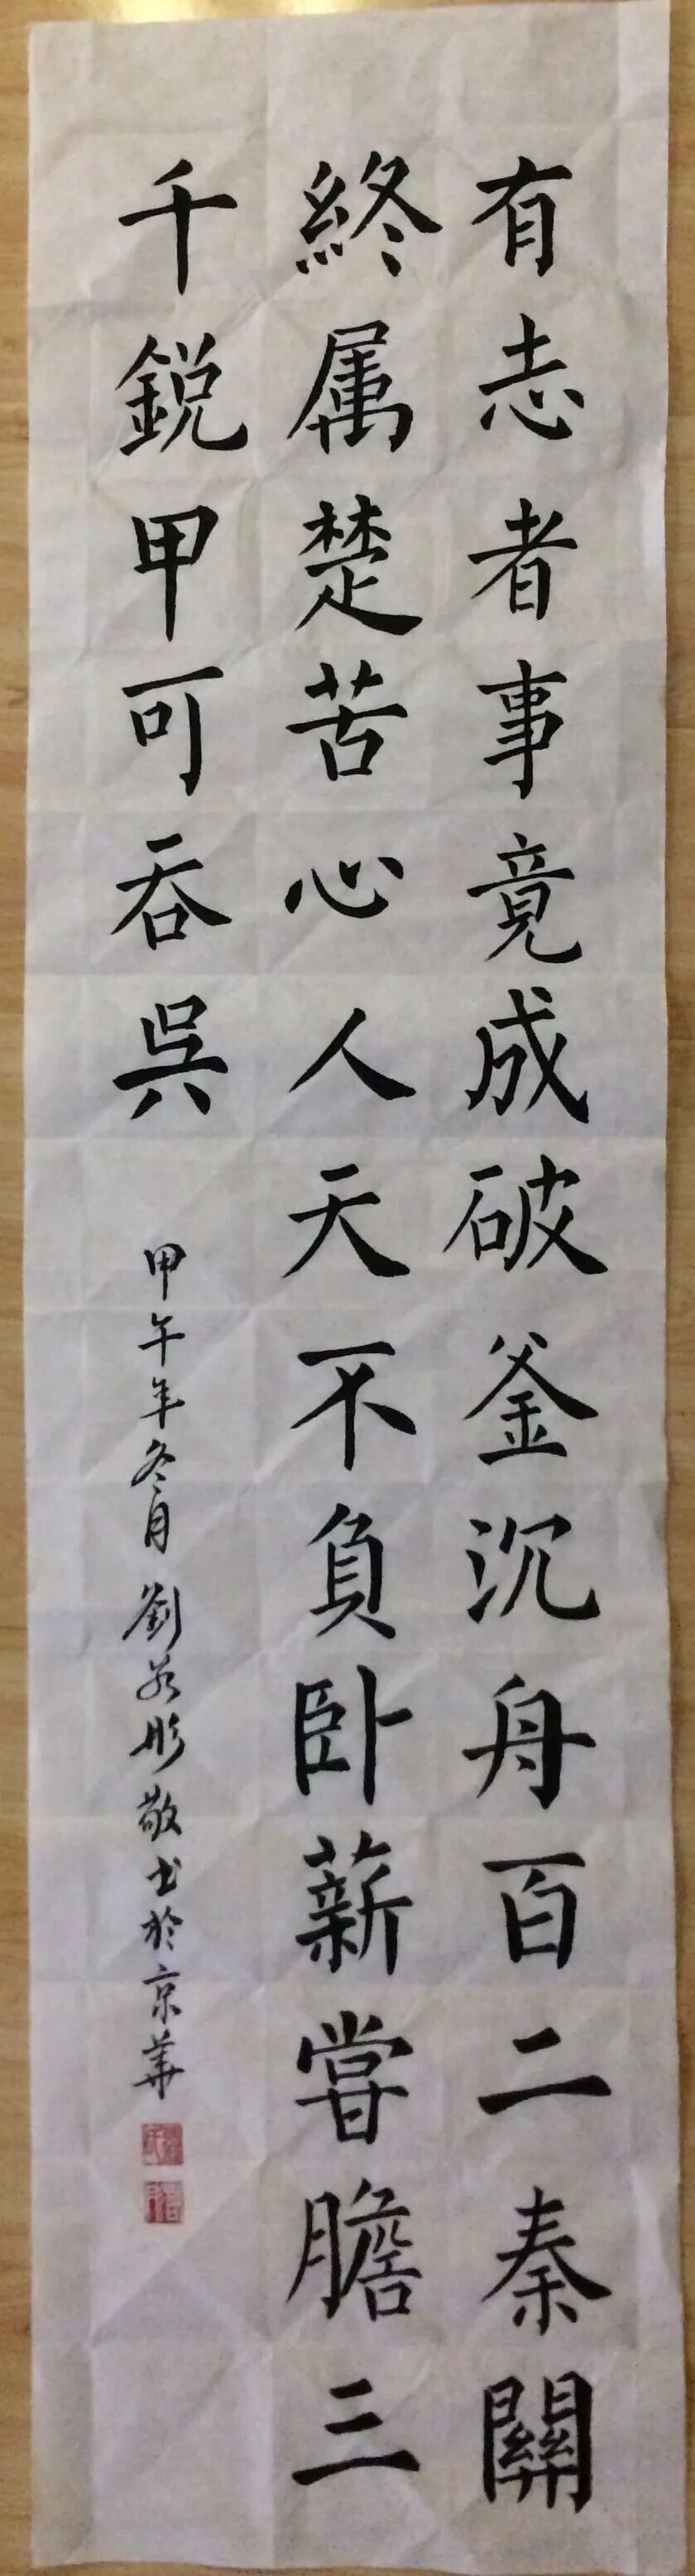 有志者事竟成破釜沉舟百二秦關
終属楚苦心人天不負卧薪嘗膽三
千鋭甲可吞吳
甲午年冬月劉若彤敬书於京華